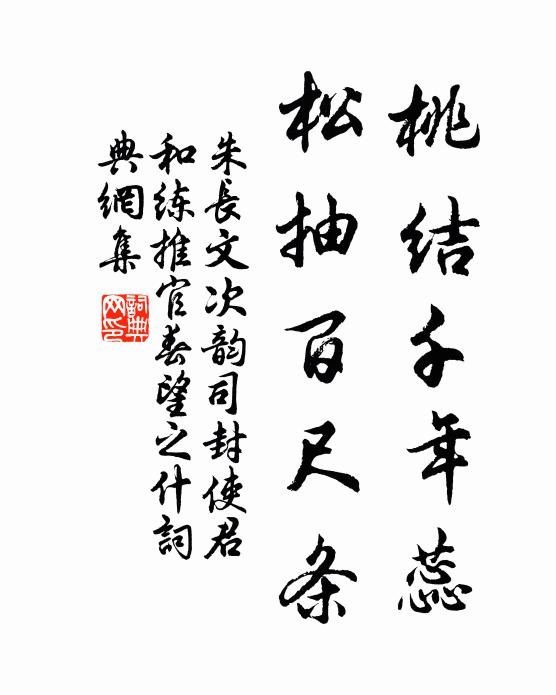 桃结千年蕊
松抽百尺条
朱長文次韵司封使君
和练推官春望之什詞
典網集
詞典网印